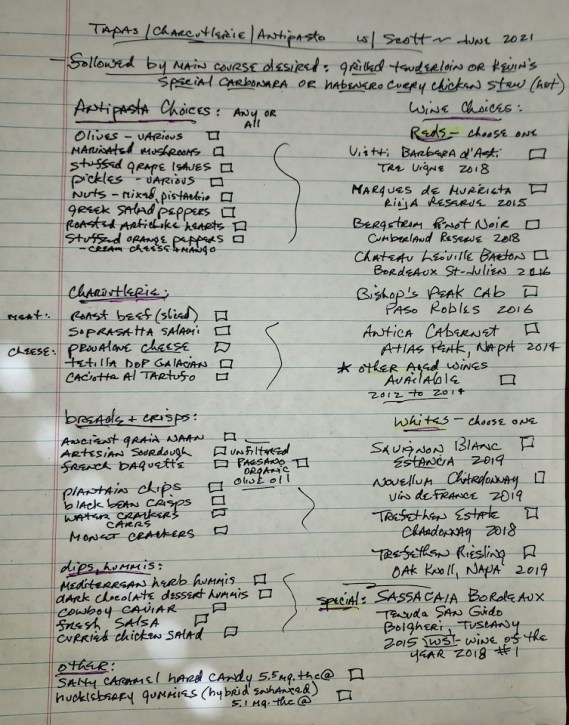 Tapas/Charcutlerie/Antipasto w/ Scott ~ June 2021
- Followed by main course desired: grilled tenderloin or Kevin's
Special Carbonara or Habenero Curry Chicken Stew (hot)
Antipasta Choices: Any or All
Olives - Various
Marinated Mushrooms
Stuffed Grape Leaves
Pickles - Various
Nuts - Mixed, pistachio
Greek Salad Peppers
Roasted Artichike Hearts
Stuffed Orange Peppers
- Cream Cheese + Mango
Charcutlerie:
Meat: Roast Beef (sliced)
Soprasatta Salami
Cheese: Provalone Cheese
Tetilla DOP Galacian
Caciotta Al Tartufo
Breads + Crisps:
Ancient Grain Naan
Artesian Sourdough
French Baquette
Unfiltered
Paesano
Organic
Olive Oil
Plantain Chips
Black Bean Crisps
Water Crackers
Carrs
Monet Crackers
Dips, Hummis:
Mediterrean Herb Hummis
Dark Chocolate Dessert Hummis
Cowboy Caviar
Fresh Salsa
Curried Chicken Salad
Other:
Salty Caramel Hard Candy 5.5 mg. thc @
Huckleberry Gummies (hybrid enhanced)
5.1 mg. thc @
Wine Choices:
Reds - Choose One
Vietti Barbera d'Asti
Tre Vigne 2018
Marques de Murrieta
Rioja Reserve 2015
Bergstrom Pinot Noir
Cumberland Reserve 2018
Chateau Leoville Barton
Bordeaux St-Julien 2016
Bishop's Peak Cab
Paso Robles 2016
Antica Cabernet
Atlas Peak, Napa 2014
* Other Aged Wines
Available
2012 to 2014
Whites - Choose One
Sauvignon Blanc
Estancia 2019
Novellum Chardonnay
Vin de France 2019
Trefethen Estate
Chardonnay 2018
Trefethen Riesling
Oak Knoll, Napa 2019
Special: Sassacaia Bordeaux
Tenuda San Guido
Bolgheri, Tuscany
2015 WS - Wine of the
Year 2018 #1